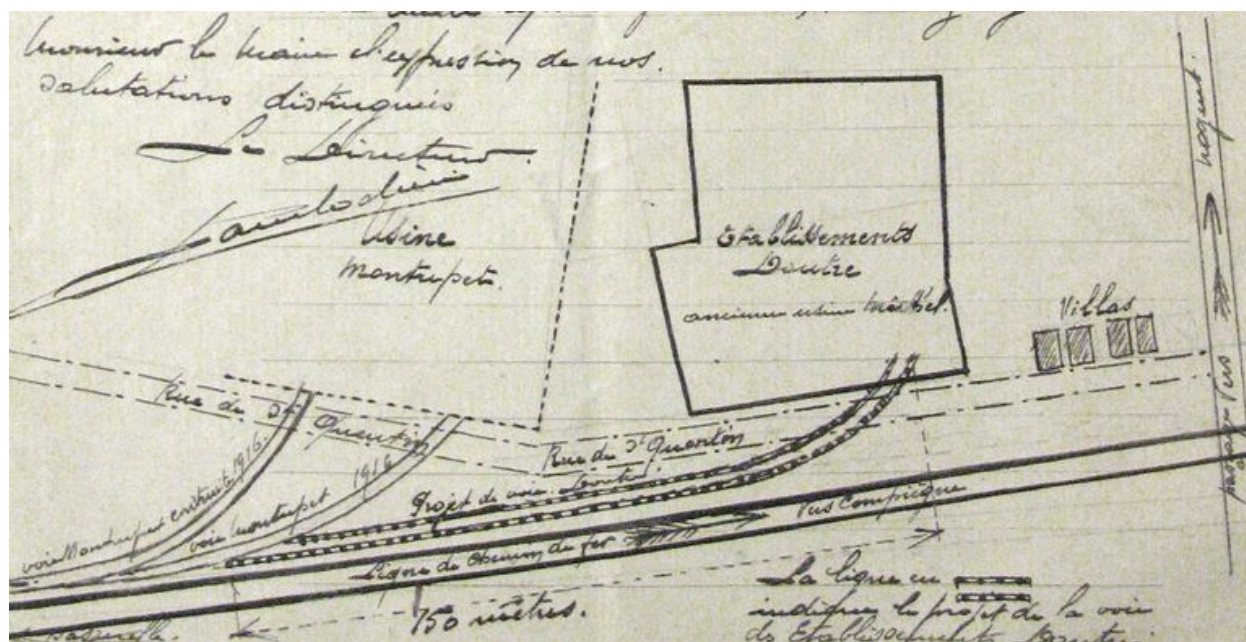 Monsieur le Maire l'expression de nos
salutations distinguées
Le Directeur.
Usine
Montupet.
Etablissements
Doutre
ancienne usine
Villas
nogent.
passage vers
Rue de St Quentin
Rue de St Quentin
voie Montupet construite 1916.
voie Montupet 1916
Projet de voie Doutre
Ligne de Chemin de fer
Vers Compiègne
150 mètres.
passerelle.
La ligne en
indique le projet de la voie
des Etablissements Doutre